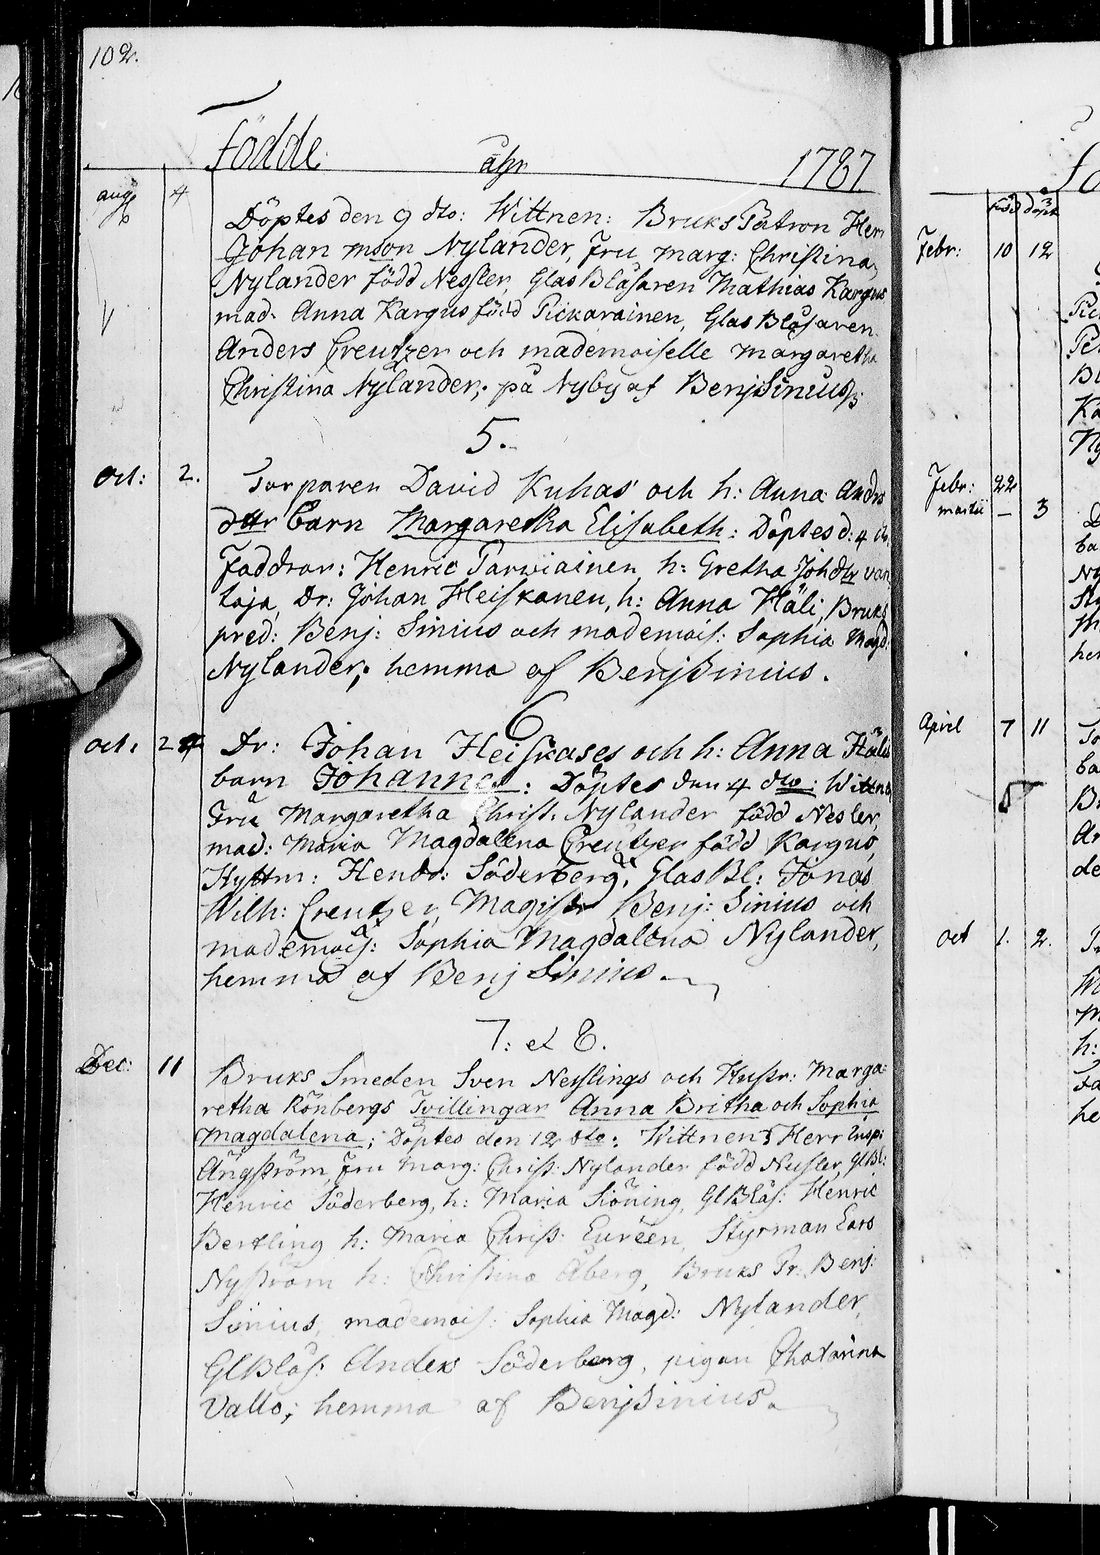 102.
Födde åhr 1787
aug 4
Döptes den 9 dto: Wittnen: Bruks Patron Herr
Johan mson Nylander, Fru marg: Christina
Nylander född Nessler, GlasBlåsaren Mathias Kargus
mad. Anna Kargus född Pickarainen, Glas Blåsaren
Anders Creutzer och mademoiselle margaretha
Christina Nylander; på Nyby af BenjSinius
5.
Oct: 2. Torparen David Kuhas och h: Anna Andrs
dttr barn Margaretha Elisabeth: Döptes d: 4 dto
Faddrar: Henric Parwiainen h: Gretha Johdtr van
taja, Dr: Johan Heiskanen, h: Anna Häli, Bruks
pred: Benj: Sinius och mademois: Sophia Magd:
Nylander; hemma af BenjSinius.
6
Oct: 2 Dr: Johan Heiskases och h: Anna
barn Johannes: Döptes den 4 dto: Wittn
Fru Margaretha Christ. Nylander född Nesler,
mad: Maria Magdalena Creutzer född Kargus,
Hyttm: Hendr: Söderberg, GlasBl: Jonas
Wilh: Creutzer, Magistr Benj: Sinius och
mademois: Sophia Magdalena Nylander,
hemma af Benj Sinius
7: et 8.
Dec: 11 Bruks Smeden Sven Nesslings och Hustr: Marga:
retha Rönbergs Tvillingar Anna Britha och Sophia
Magdalena; Döptes den 12 dto: Wittnen: Herr Insp:
Ångström, Fru Marg: Christ: Nylander född Nessler, GlBl:
Henric Söderberg, h: Maria Siöning, GlBlås: Henric
Bertling h: Maria Christ: Eureen, Styrman Lars
Nyström h: Christina Åberg, Bruks Pr: Benj:
Sinius, mademois: Sophia Magd: Nylander,
GlBlås: Anders Söderberg, pigan Chatarina
Vallo; hemma af BenjSinius.
Född Döpt
Febr: 10 12
Febr: 22
martii — 3
April 7 11
Oct 1. 2.